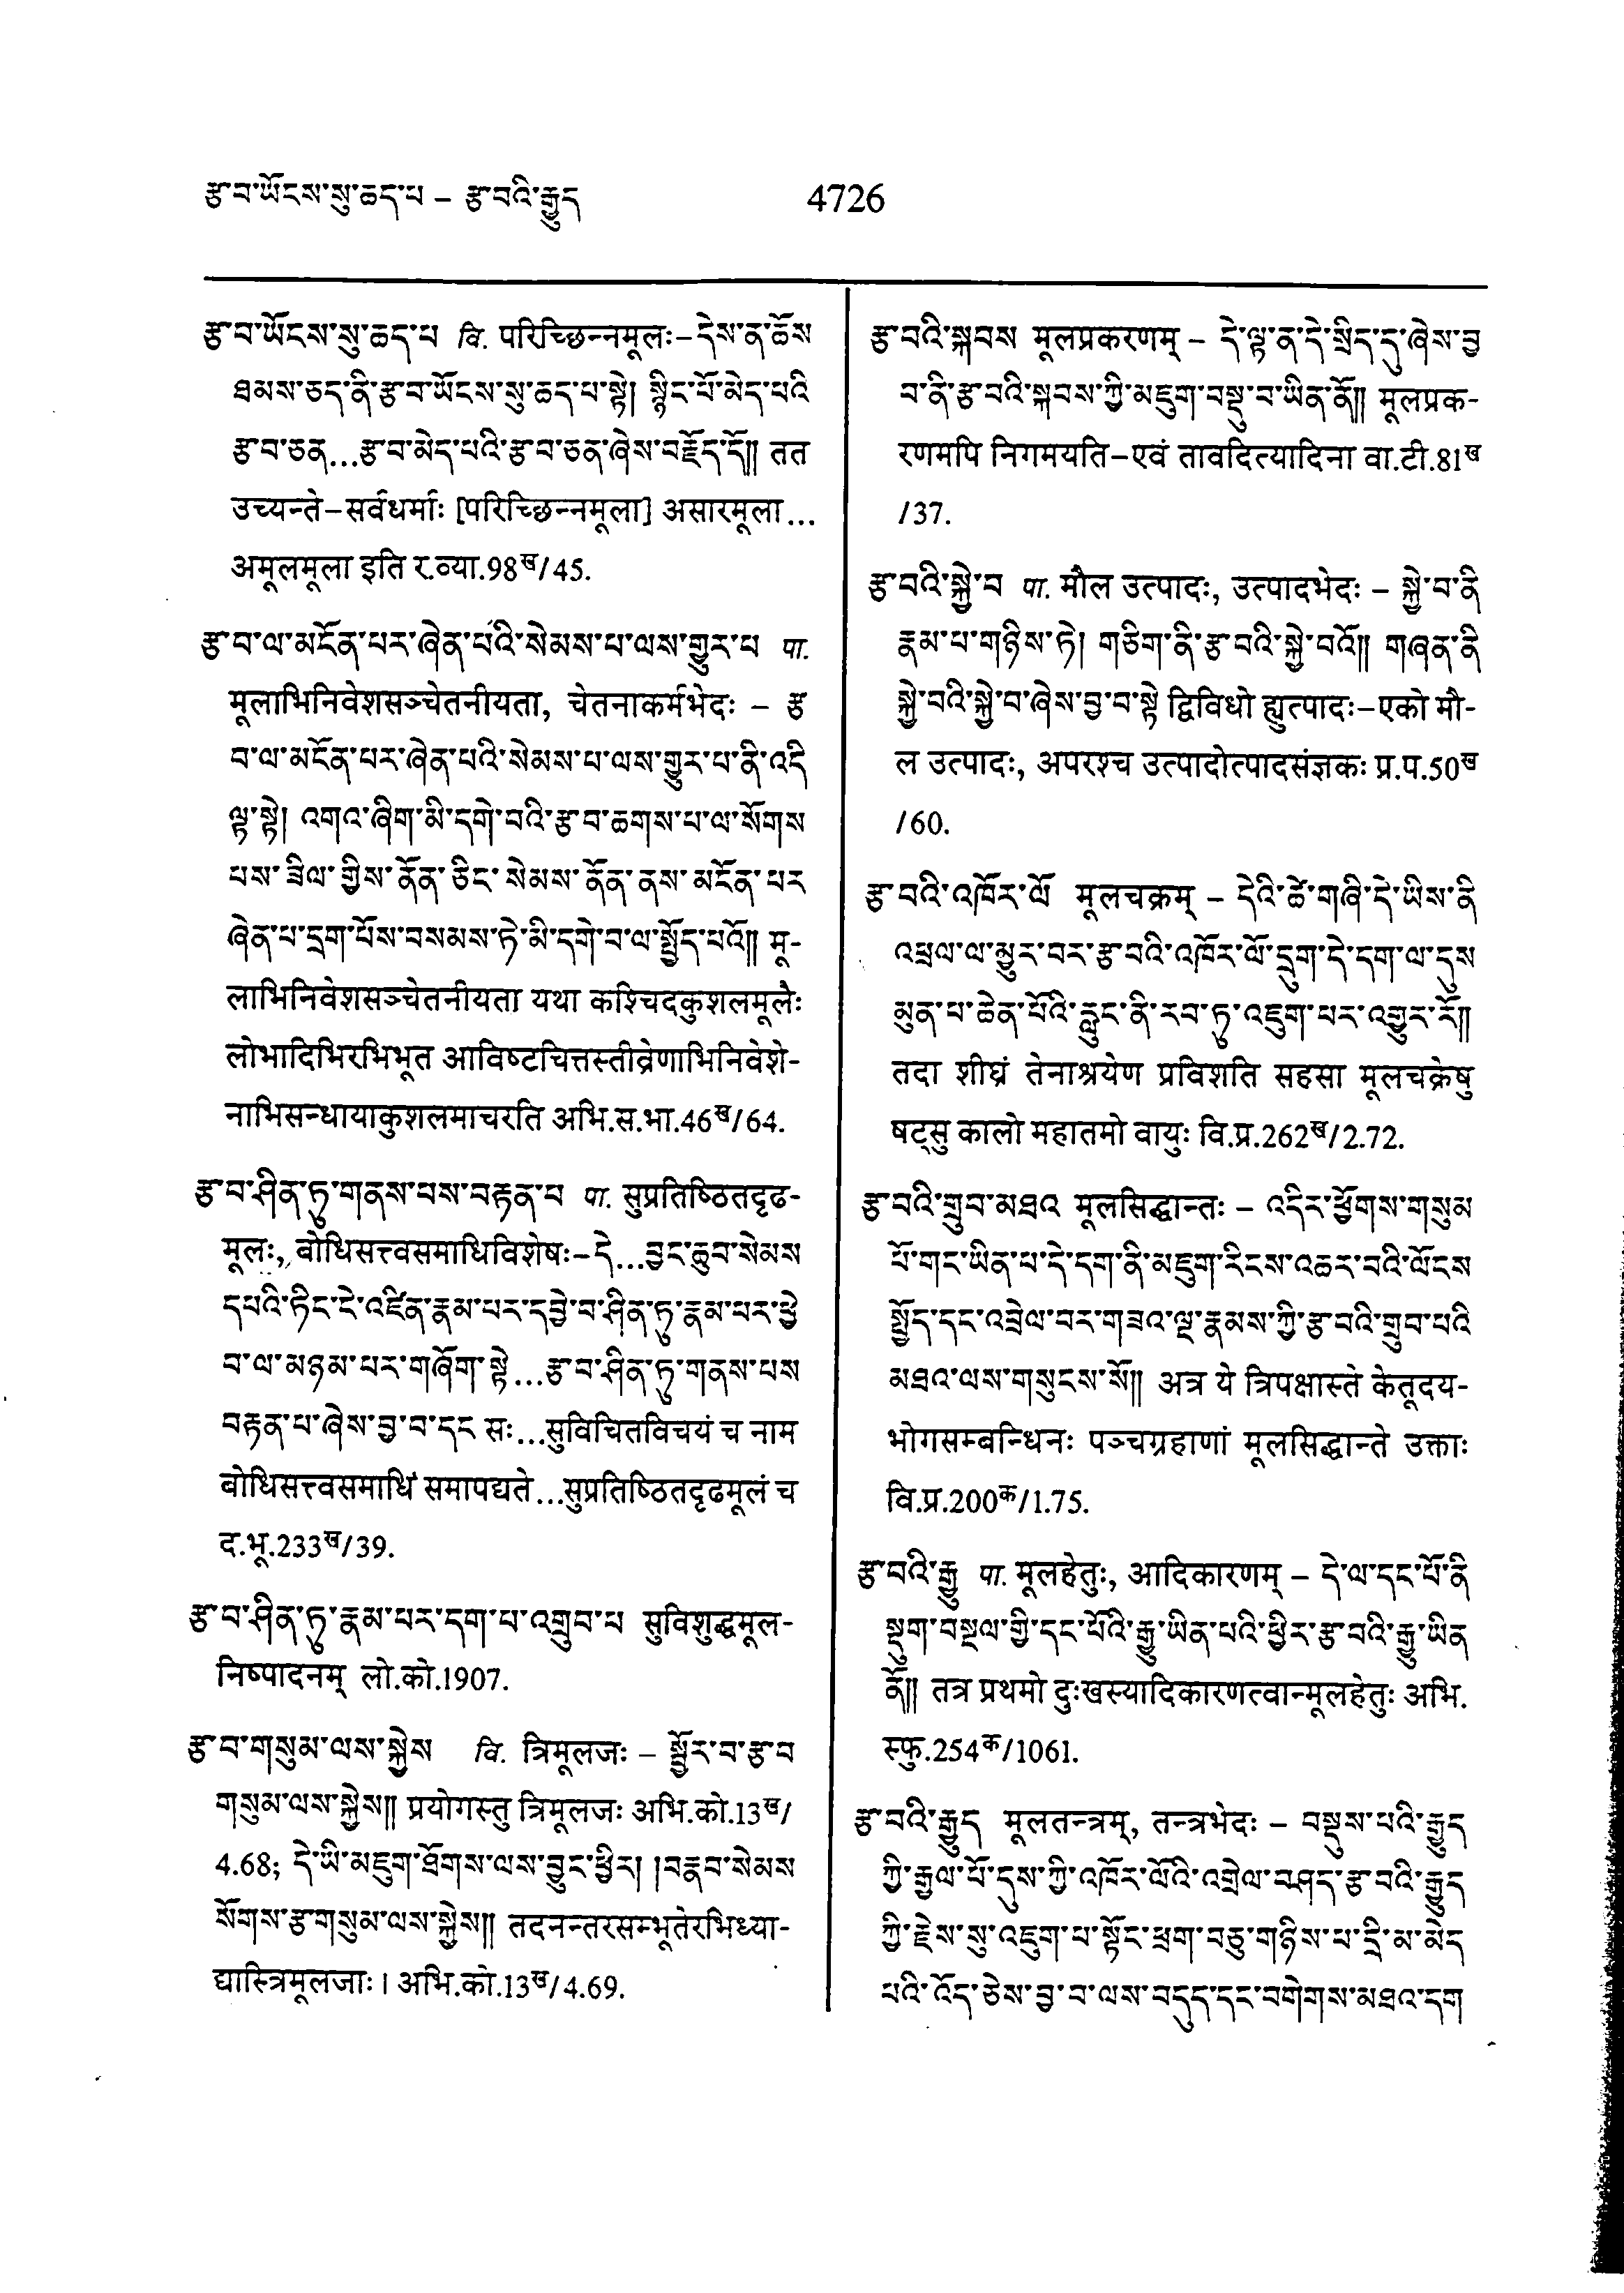 རྩ་བ་ཡོངས་སུ་ཆད་པ – རྩ་བའི་རྒྱུད
4726
རྩ་བ་ཡོངས་སུ་ཆད་པ वि. परिच्छिन्नमूलः–དེས་ན་ཆོས
ཐམས་ཅད་ནི་རྩ་བ་ཡོངས་སུ་ཆད་པ་སྟེ། སྙིང་པོ་མེད་པའི
རྩ་བ་ཅན…རྩ་བ་མེད་པའི་རྩ་བ་ཅན་ཞེས་བརྗོད་དོ།། तत
उच्यन्ते–सर्वधर्माः [परिच्छिन्नमूला] असारमूला…
अमूलमूला इति र.व्या.98ख/45.
རྩ་བ་ལ་མངོན་པར་ཞེན་པའི་སེམས་པ་ལས་གྱུར་པ पा.
मूलाभिनिवेशसञ्चेतनीयता, चेतनाकर्मभेदः – རྩ
བ་ལ་མངོན་པར་ཞེན་པའི་སེམས་པ་ལས་གྱུར་པ་ནི་འདི
ལྟ་སྟེ། འགའ་ཞིག་མི་དགེ་བའི་རྩ་བ་ཆགས་པ་ལ་སོགས
པས་ཟིལ་གྱིས་ནོན་ཅིང་སེམས་ནོན་ནས་མངོན་པར
ཞེན་པ་དྲག་པོས་བསམས་ཏེ་མི་དགེ་བ་ལ་སྤྱོད་པའོ།། मू-
लाभिनिवेशसञ्चेतनीयता यथा कश्चिदकुशलमूलैः
लोभादिभिरभिभूत आविष्टचित्तस्तीव्रेणाभिनिवेशे-
नाभिसन्धायाकुशलमाचरति अभि.स.भा.46ख/64.
རྩ་བ་ཤིན་ཏུ་གནས་པས་བརྟན་པ पा. सुप्रतिष्ठितदृढ-
मूलः, बोधिसत्त्वसमाधिविशेषः–དེ…བྱང་ཆུབ་སེམས
དཔའི་ཏིང་ངེ་འཛིན་རྣམ་པར་དབྱེ་བ་ཤིན་ཏུ་རྣམ་པར་ཕྱེ
བ་ལ་མཉམ་པར་གཞོག་སྟེ…རྩ་བ་ཤིན་ཏུ་གནས་པས
བརྟན་པ་ཞེས་བྱ་བ་དང सः…सुविचितविचयं च नाम
बोधिसत्त्वसमाधिं समापद्यते…सुप्रतिष्ठितदृढमूलं च
द.भू.233ख/39.
རྩ་བ་ཤིན་ཏུ་རྣམ་པར་དག་པ་འགྲུབ་པ सुविशुद्धमूल-
निष्पादनम् लो.को.1907.
རྩ་བ་གསུམ་ལས་སྐྱེས वि. त्रिमूलजः – སྦྱོར་བ་རྩ་བ
གསུམ་ལས་སྐྱེས།། प्रयोगस्तु त्रिमूलजः अभि.को.13ख/
4.68; དེ་ཡི་མཇུག་ཐོགས་ལས་བྱུང་ཕྱིར། །བརྣབ་སེམས
སོགས་རྩ་གསུམ་ལས་སྐྱེས།། तदनन्तरसम्भूतेरभिध्या-
द्यास्त्रिमूलजाः। अभि.को.13ख/4.69.
རྩ་བའི་སྐབས मूलप्रकरणम् – དེ་ལྟ་ན་དེ་སྲིད་དུ་ཞེས་བྱ
བ་ནི་རྩ་བའི་སྐབས་ཀྱི་མཇུག་བསྡུ་བ་ཡིན་ནོ།། मूलप्रक-
रणमपि निगमयति–एवं तावदित्यादिना वा.टी.81ख
/37.
རྩ་བའི་སྐྱེ་བ पा. मौल उत्पादः, उत्पादभेदः – སྐྱེ་བ་ནི
རྣམ་པ་གཉིས་ཏེ། གཅིག་ནི་རྩ་བའི་སྐྱེ་བའོ།། གཞན་ནི
སྐྱེ་བའི་སྐྱེ་བ་ཞེས་བྱ་བ་སྟེ द्विविधो ह्युत्पादः–एको मौ-
ल उत्पादः, अपरश्च उत्पादोत्पादसंज्ञकः प्र.प.50ख
/60.
རྩ་བའི་འཁོར་ལོ मूलचक्रम् – དེའི་ཚེ་གཞི་དེ་ཡིས་ནི
འཕྲལ་ལ་མྱུར་བར་རྩ་བའི་འཁོར་ལོ་དྲུག་དེ་དག་ལ་དུས
མུན་པ་ཆེན་པོའི་རླུང་ནི་རབ་ཏུ་འཇུག་པར་འགྱུར་རོ།།
तदा शीघ्रं तेनाश्रयेण प्रविशति सहसा मूलचक्रेषु
षट्सु कालो महातमो वायुः वि.प्र.262ख/2.72.
རྩ་བའི་གྲུབ་མཐའ मूलसिद्धान्तः – འདིར་ཕྱོགས་གསུམ
པོ་གང་ཡིན་པ་དེ་དག་ནི་མཇུག་རིངས་འཆར་བའི་ལོངས
སྤྱོད་དང་འབྲེལ་བར་གཟའ་ལྔ་རྣམས་ཀྱི་རྩ་བའི་གྲུབ་པའི
མཐའ་ལས་གསུངས་སོ།། अत्र ये त्रिपक्षास्ते केतूदय-
भोगसम्बन्धिनः पञ्चग्रहाणां मूलसिद्धान्ते उक्ताः
वि.प्र.200क/1.75.
རྩ་བའི་རྒྱུ पा. मूलहेतुः, आदिकारणम् – དེ་ལ་དང་པོ་ནི
སྡུག་བསྔལ་གྱི་དང་པོའི་རྒྱུ་ཡིན་པའི་ཕྱིར་རྩ་བའི་རྒྱུ་ཡིན
ནོ།། तत्र प्रथमो दुःखस्यादिकारणत्वान्मूलहेतुः अभि.
स्फु.254क/1061.
རྩ་བའི་རྒྱུད मूलतन्त्रम्, तन्त्रभेदः – བསྡུས་པའི་རྒྱུད
ཀྱི་རྒྱལ་པོ་དུས་ཀྱི་འཁོར་ལོའི་འགྲེལ་བཤད་རྩ་བའི་རྒྱུད
ཀྱི་རྗེས་སུ་འཇུག་པ་སྟོང་ཕྲག་བཅུ་གཉིས་པ་དྲི་མ་མེད
པའི་འོད་ཅེས་བྱ་བ་ལས་བདུད་དང་བགེགས་མཐའ་དག